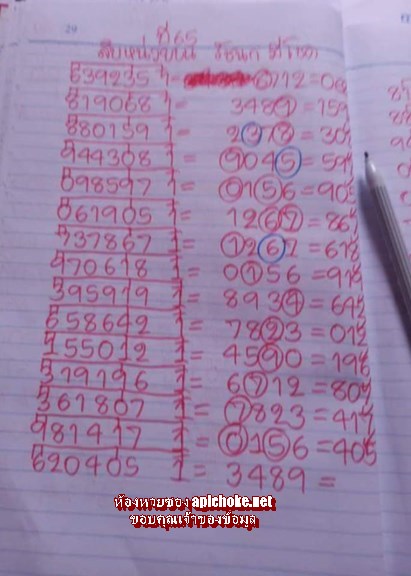 29
ที่65
สิบหน่วยบน
639235 1= 6712=
819068 1= 3489=159
880159 1= 2378=301
944308 1= 9045=591
098597 1= 0156=90
061905 1= 1267=867
737867 1= 1267=618
970618 1= 0156=919
395919 1= 8934=642
658642 1= 7823=012
155012 1= 4590=196
319196 1= 6712=807
361807 1= 7823=417
981417 1= 0156=405
620405 1= 3489=
ห้องหวยของ apichoke.net
ขอบคุณเจ้าของข้อมูล